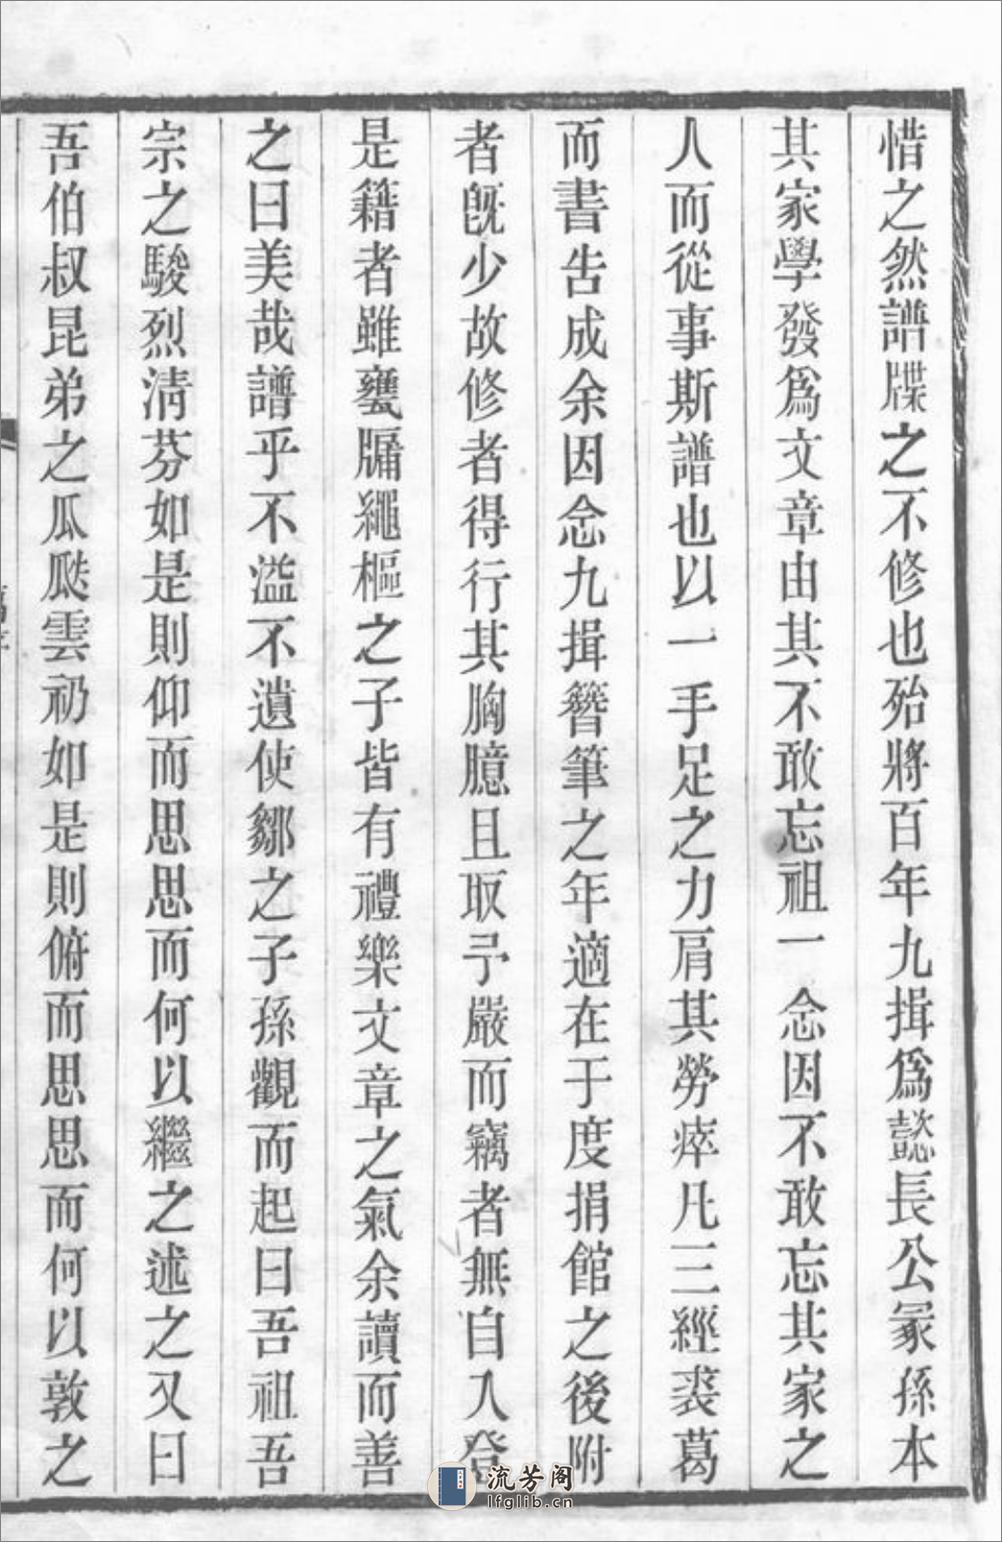 惜之然譜牒之不修也殆將百年九揖爲懿長公冢孫本
其家學發爲文章由其不敢忘祖一念因不敢忘其家之
人而從事斯譜也以一手足之力肩其勞瘁凡三經裘葛
而書告成余因念九揖簪筆之年適在于度捐館之後附
者旣少故修者得行其胸臆且取予嚴而竊者無自入登
是籍者雖甕牖繩樞之子皆有禮樂文章之氣余讀而善
之曰美哉譜乎不溢不遺使鄒之子孫觀而起曰吾祖吾
宗之駿烈淸芬如是則仰而思思而何以繼之述之又曰
吾伯叔昆弟之瓜瓞雲礽如是則俯而思思而何以敦之
流芳阁
lfglib.cn